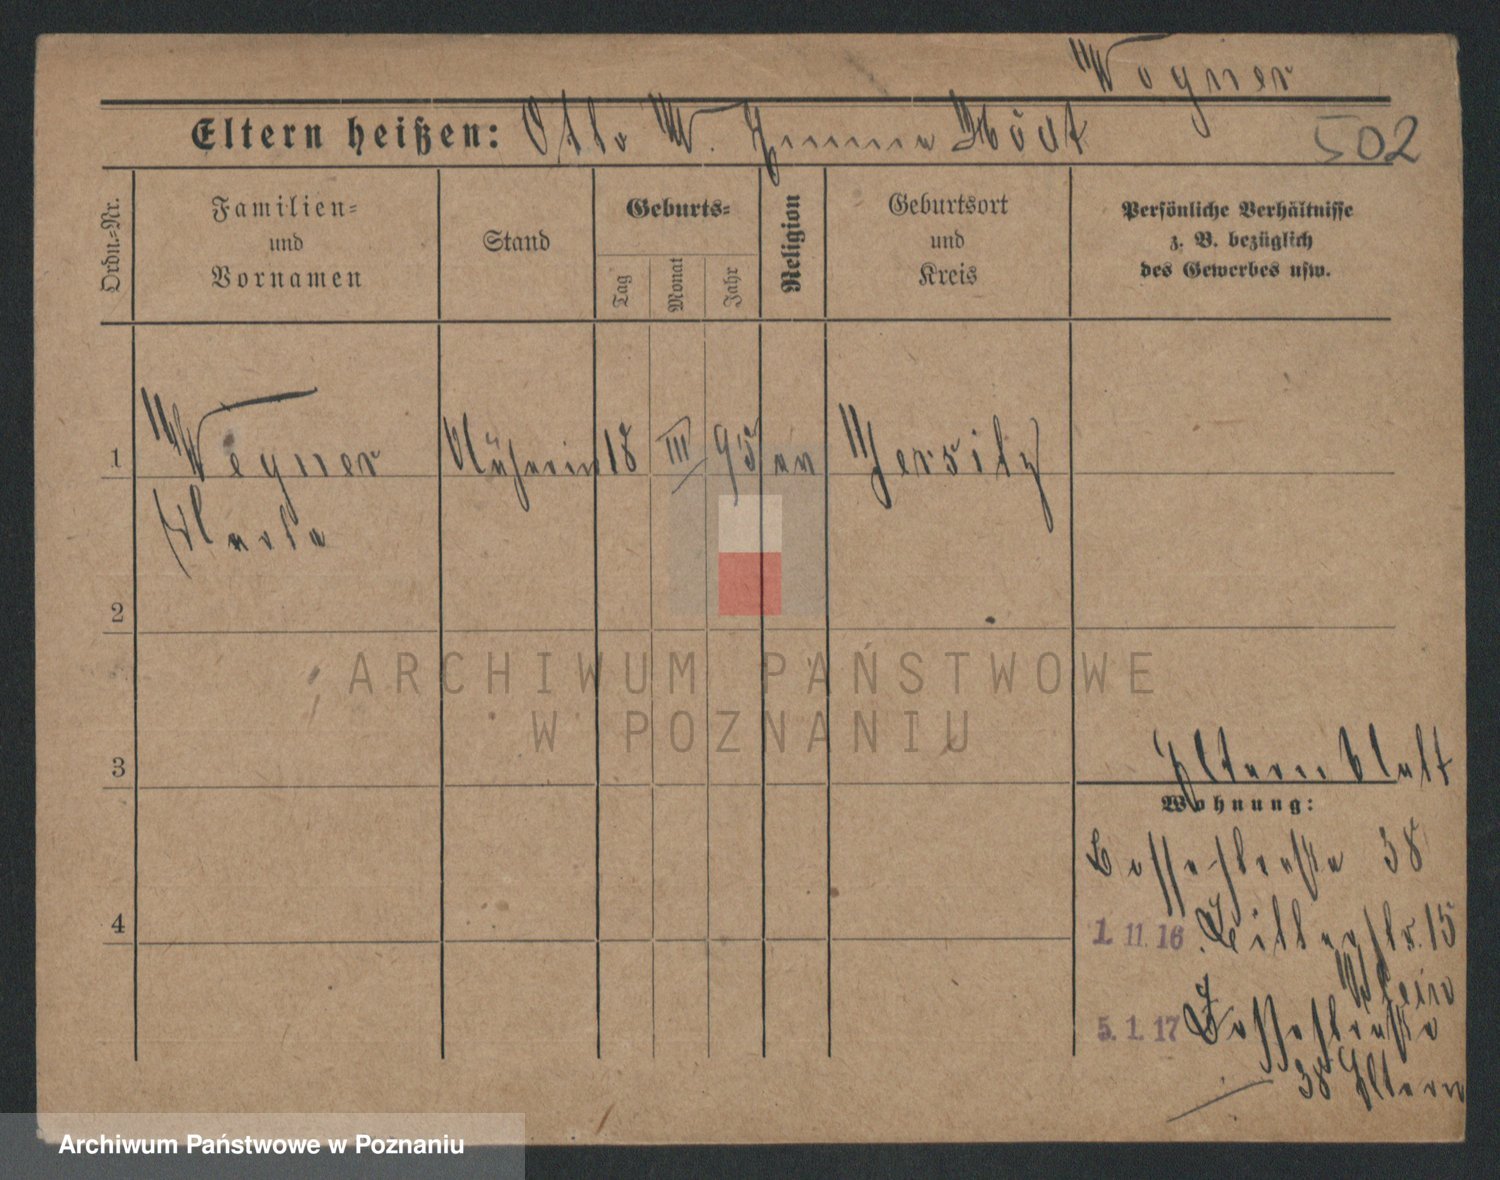 Wegner
Eltern heißen: Otto W. Emma Hödt
502
Ordn.-Nr.
Familien-
und
Vornamen
Stand
Geburts-
Tag
Monat
Jahr
Religion
Geburtsort
und
Kreis
Persönliche Verhältnisse
z. B. bezüglich
des Gewerbes usw.
1
Wegner Näherin 18 III 95 ev Jersitz
2
3
4
ARCHIWUM PAŃSTWOWE
W POZNANIU
Elternblatt
Wohnung:
38
1. 11. 16 15
5. 1. 17
38 Eltern
Archiwum Państwowe w Poznaniu